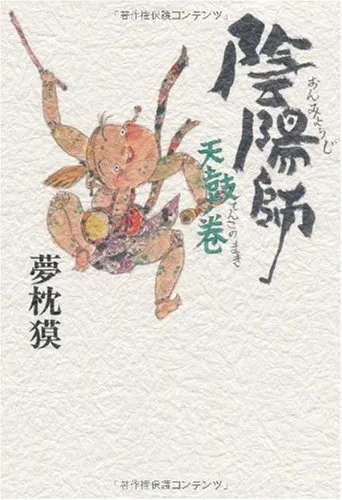 「著作権保護コンテンツ」
陰陽師
おんみょうじ
天鼓ノ巻
てんこのまき
夢枕獏
「著作権保護コンテンツ」